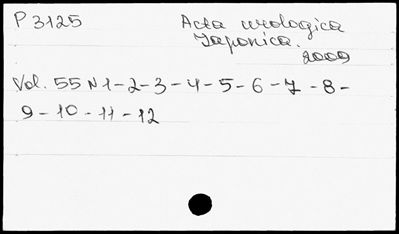 P 3125 Acta urologica
Japonica.
2009
Vol. 55 N 1-2-3-4-5-6-7-8-
9-10-11-12